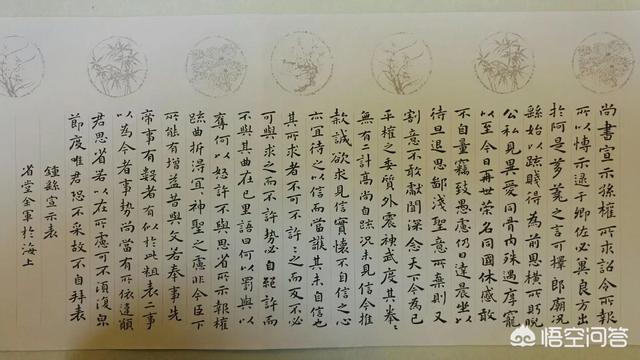 尚書宣示孫權所求詔令所報
所以博示逮于卿佐必冀良方出
於阿是芻蕘之言可擇郎廟況
繇始以疏賤得為前恩橫所眄睨
公私見異愛同骨肉殊遇厚寵
以至今日再世榮名同國休慼敢
不自量竊致愚慮仍日達晨坐以
待旦退思鄙淺聖意所棄則又
割意不敢獻聞深念天下今為已
平權之委質外震神武度其拳々
無有二計高尚自疏況未見信今推
款誠欲求見信實懷不自信之心
亦宜待之以信而當護其未自信也
其所求者不可不許々之而反不必
可與求之而不許勢必自絕許而
不與其曲在己里語曰何以罰與以
奪何以怒許不與思省所示報權
疏曲折得宜神聖之慮非今臣下
所能有增益昔與文若奉事先
帝事有數者有似於此粗表二事
以為今者事勢尚當有所依違願
君思省若以在所慮可不須復皃
節度唯君恐不采故不自拜表
鍾繇宣示表
省堂金軍於海上
悟空问答